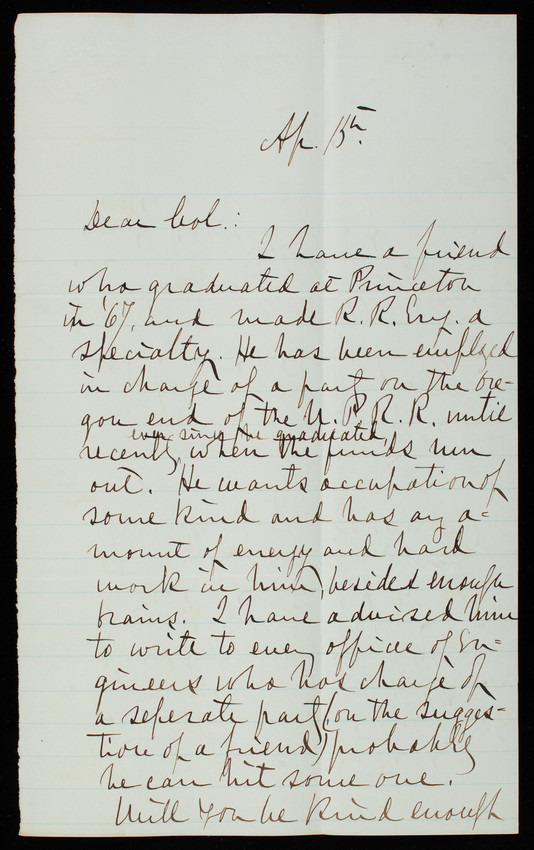 Ap. 15th.
Dear Col.:
I have a friend
who graduated at Princeton
in '67, and made R. R. Eng. a
specialty. He has been employed
in charge of a party on the Ore-
gon end of the N. P. R. R. until
ever since he graduated,
recently, when the funds run
out. He wants occupation of
some kind and has any a-
mount of energy and hard
work in him, besides enough
brains. I have advised him
to write to every officer of En-
gineers who has charge of
a seperate party (on the sugges-
tion of a friend) probably
he can hit some one.
Will you be kind enough